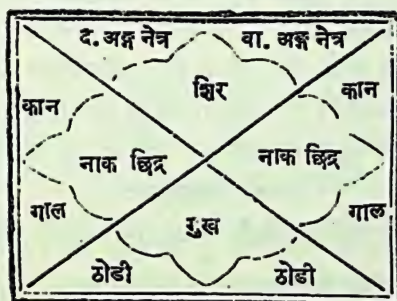 द. अङ्ग नेत्र वा. अङ्ग नेत्र
शिर
कान कान
नाक छिद्र नाक छिद्र
गाल गाल
मुख
ठोडी ठोडी